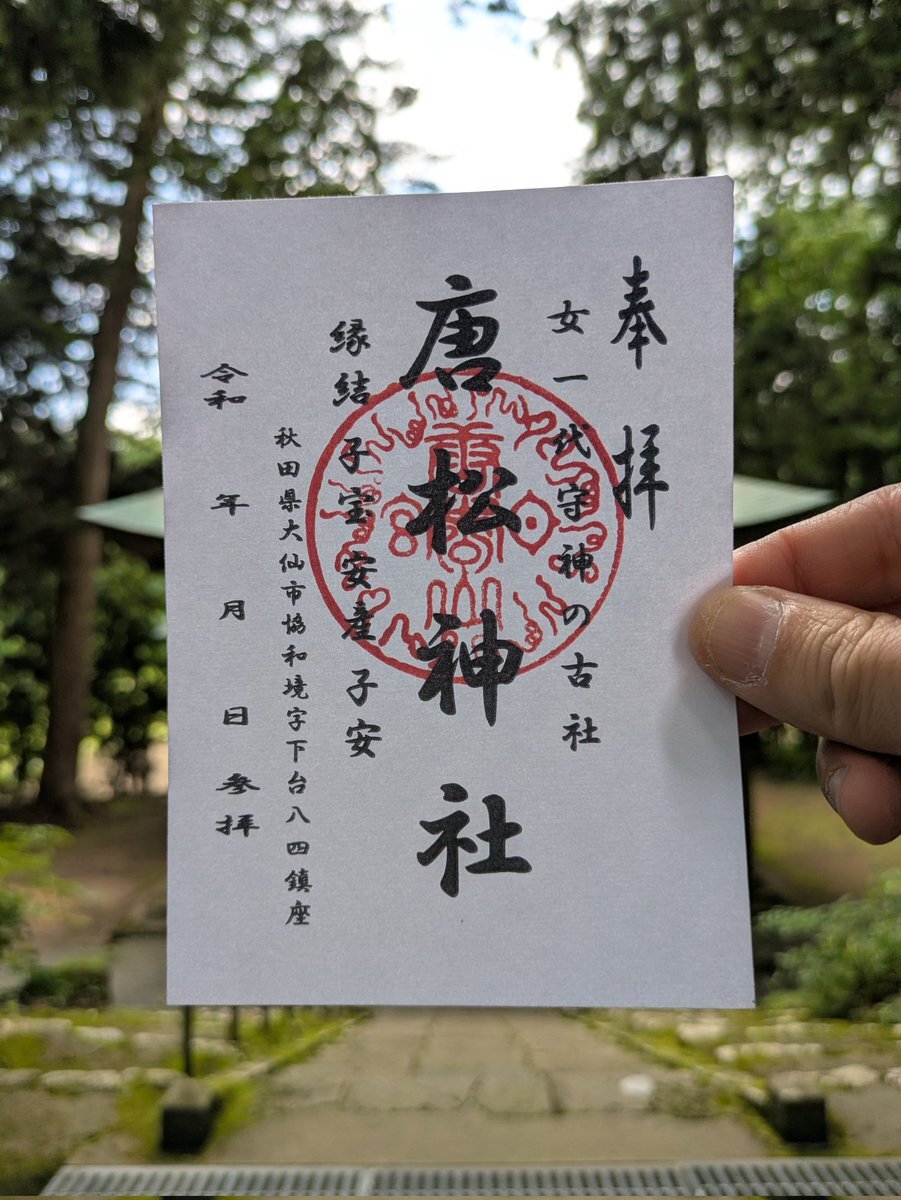 奉拝
女一代守神の古社
唐松神社
縁結子宝安産子安
秋田県大仙市協和境字下台八四鎮座
令和 年 月 日 参拝